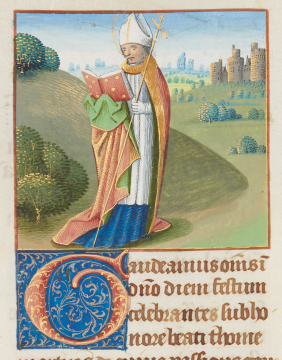 Gaudeamus om̄s ī
dn̄o diem festum
celebrantes sub ho
nore beati thome